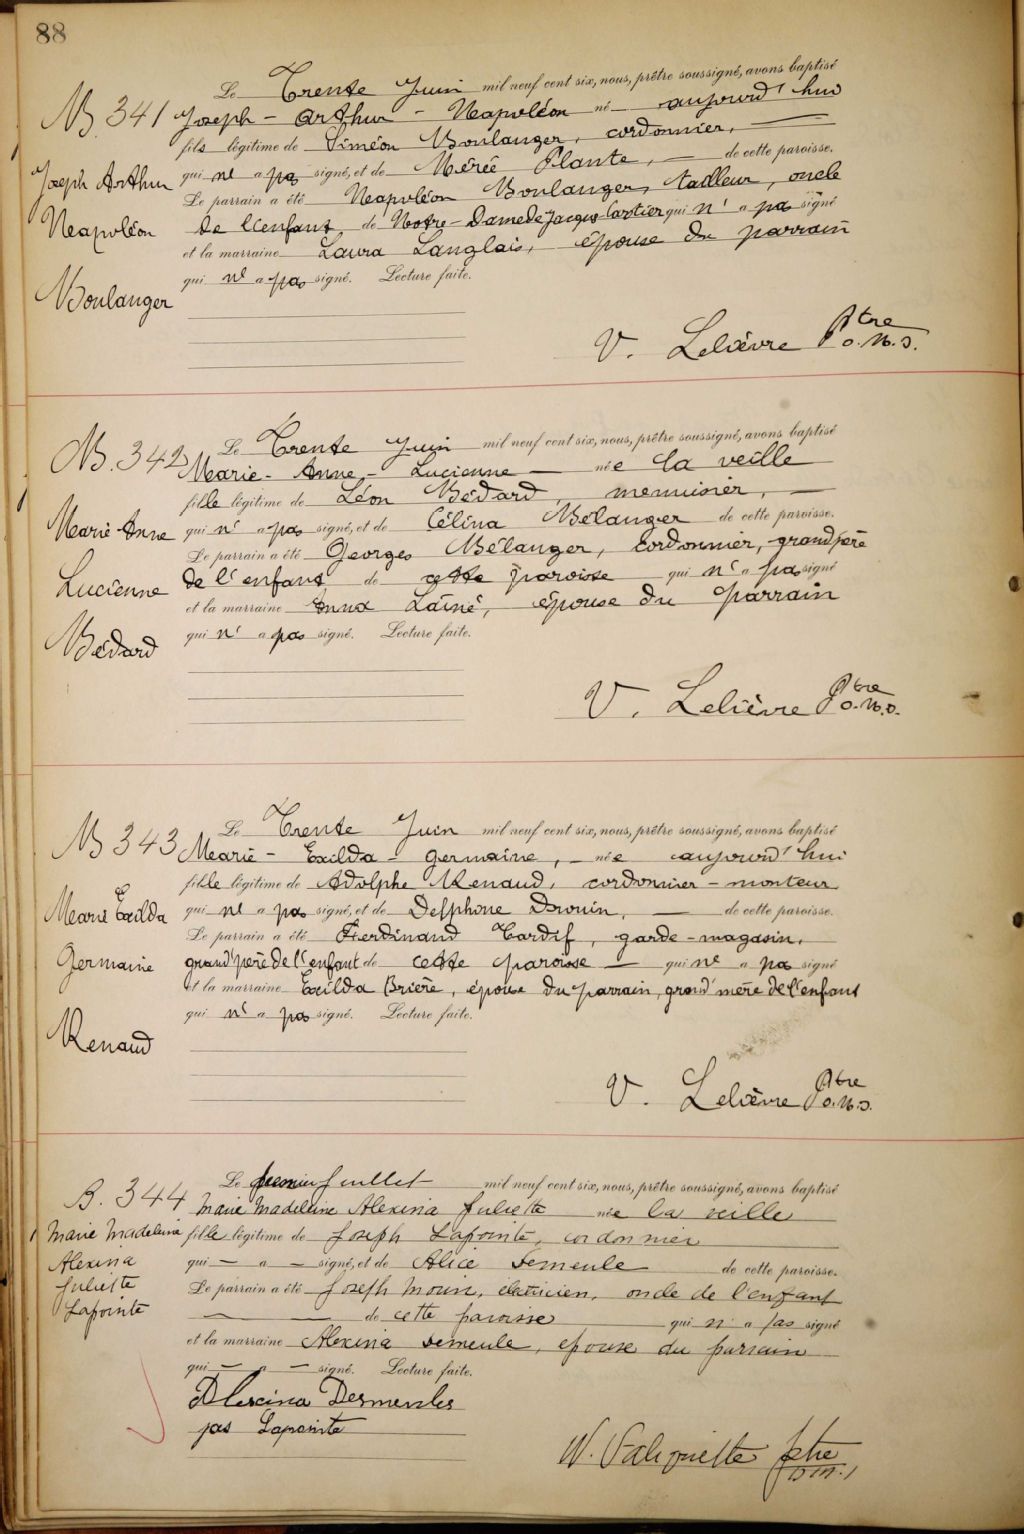 88
B. 341
Joseph Arthur
Napoléon
Boulanger
Le Trente Juin mil neuf cent six, nous, prêtre soussigné, avons baptisé
Joseph - Arthur - Napoléon né aujourd'hui
fils légitime de Siméon Boulanger, cordonnier,
qui n'a pas signé, et de Mérée Plante, de cette paroisse.
Le parrain a été Napoléon Boulanger, tailleur, oncle
de l'enfant, de Notre-Dame de Jacques-Cartier qui n'a pas signé
et la marraine Laura Langlais, épouse du parrain
qui n'a pas signé. Lecture faite.
V. Lelièvre Ptre
O.M.I.
B. 342
Marie-Anne
Lucienne
Bédard
Le Trente Juin mil neuf cent six, nous, prêtre soussigné, avons baptisé
Marie - Anne - Lucienne née la veille
fille légitime de Léon Bédard, menuisier,
qui n'a pas signé, et de Célina Bélanger de cette paroisse.
Le parrain a été Georges Bélanger, cordonnier, grand'père
de l'enfant de cette paroisse qui n'a pas signé
et la marraine Anna Lainé, épouse du parrain
qui n'a pas signé. Lecture faite.
V. Lelièvre Ptre
O.M.I.
B 343
Marie Exilda
Germaine
Renaud
Le Trente Juin mil neuf cent six, nous, prêtre soussigné, avons baptisé
Marie - Exilda - Germaine, née aujourd'hui
fille légitime de Adolphe Renaud, cordonnier - monteur
qui n'a pas signé, et de Delphine Drouin, de cette paroisse.
Le parrain a été Ferdinand Tardif, garde-magasin,
grand'père de l'enfant de cette paroisse qui n'a pas signé
et la marraine Exilda Brière, épouse du parrain, grand'mère de l'enfant
qui n'a pas signé. Lecture faite.
V. Lelièvre Ptre
O.M.I.
B. 344
Marie Madeleine
Alexina
Juliette
Lapointe
Le premier Juillet mil neuf cent six, nous, prêtre soussigné, avons baptisé
Marie Madeleine Alexina Juliette née la veille
fille légitime de Joseph Lapointe, cordonnier
qui — a — signé, et de Alice Demeule de cette paroisse.
Le parrain a été Joseph Morin, électricien, oncle de l'enfant
de cette paroisse qui n'a pas signé
et la marraine Alexina Demeule, epouse du parrain
qui — a — signé. Lecture faite.
Alexina Desmeules
jos Lapointe
W. Valiquette ptre
O.M.I